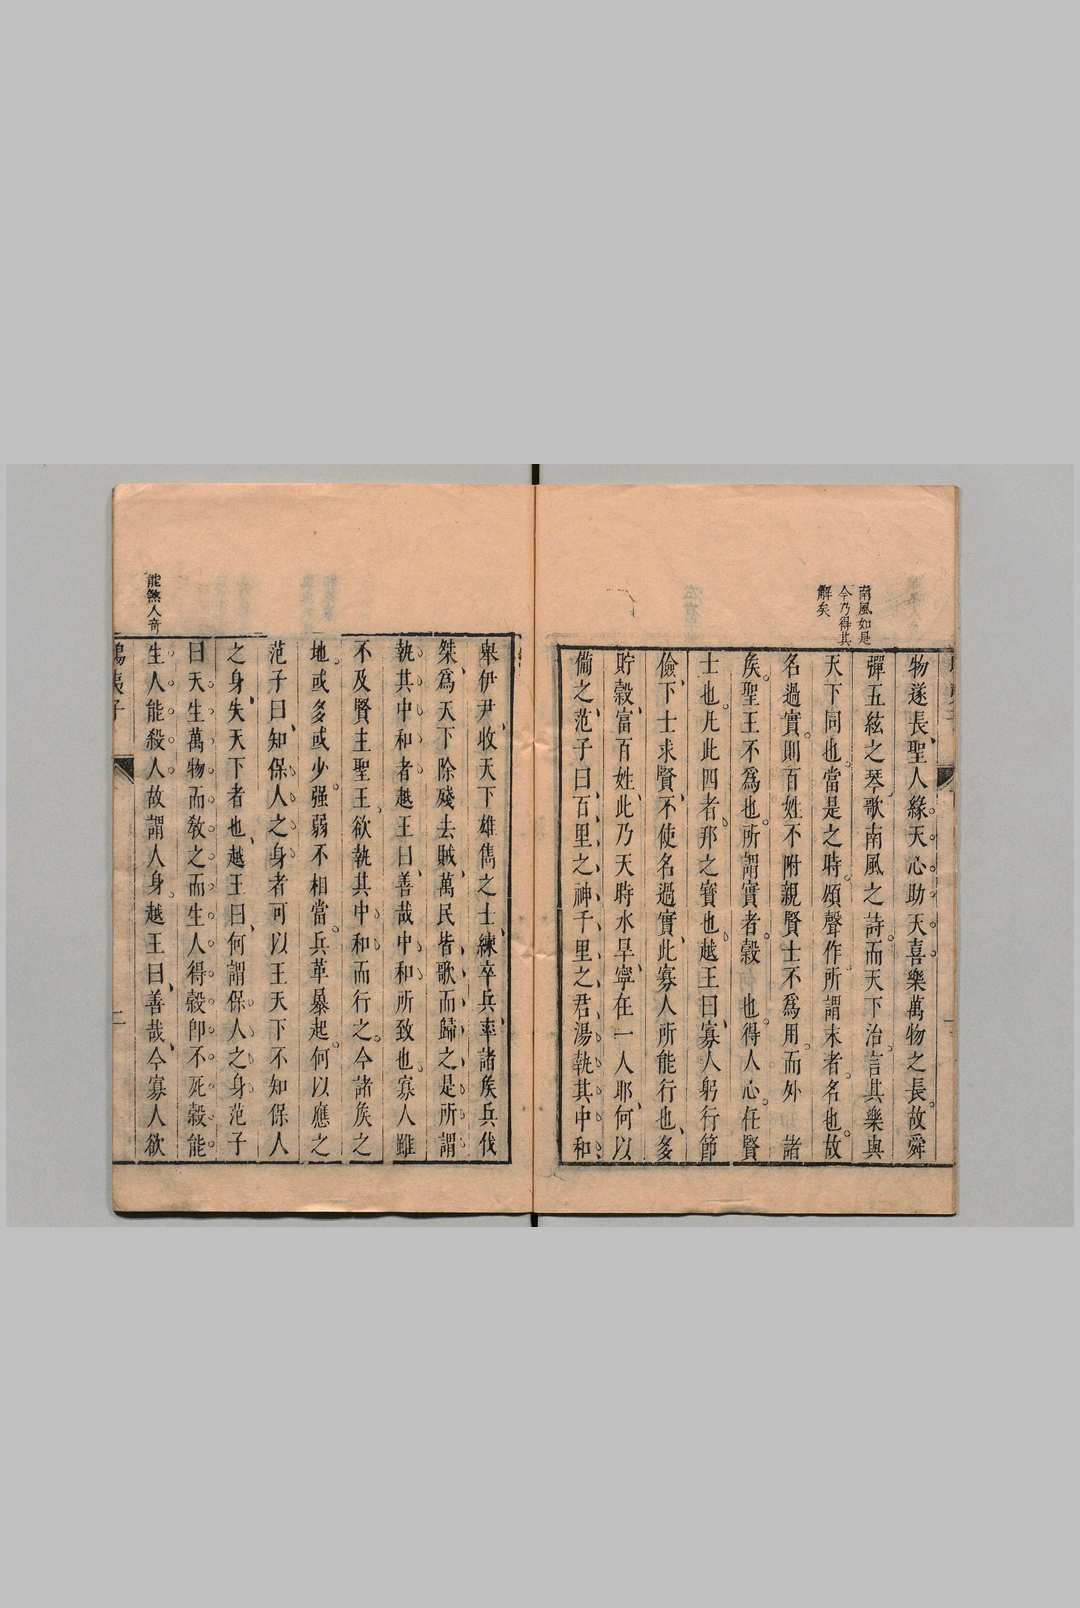 南風如是
今乃得其
解矣
物遂長聖人緣天心助天喜樂萬物之長故舜
彈五絃之琴歌南風之詩而天下治言其樂與
天下同也當是之時頌聲作所謂末者名也故
名過實則百姓不附親賢士不為用而外　諸
侯聖王不為也所謂實者穀　也得人心任賢
士也凡此四者邦之寶也越王曰寡人躬行節
儉下士求賢不使名過實此寡人所能行也多
貯穀富百姓此乃天時水旱寧在一人耶何以
備之范子曰百里之神千里之君湯執其中和
舉伊尹收天下雄雋之士練卒兵率諸侯兵伐
桀爲天下除殘去賊萬民皆歌而歸之是所謂
執其中和者越王曰善哉中和所致也寡人雖
不及賢主聖王欲執其中和而行之今諸侯之
地或多或少强弱不相當兵革暴起何以應之
范子曰知保人之身者可以王天下不知保人
之身失天下者也越王曰何謂保人之身范子
曰天生萬物而敎之而生人得穀卽不死穀能
能煞人奇
生人能殺人故謂人身越王曰善哉今寡人欲
鴟夷子
二